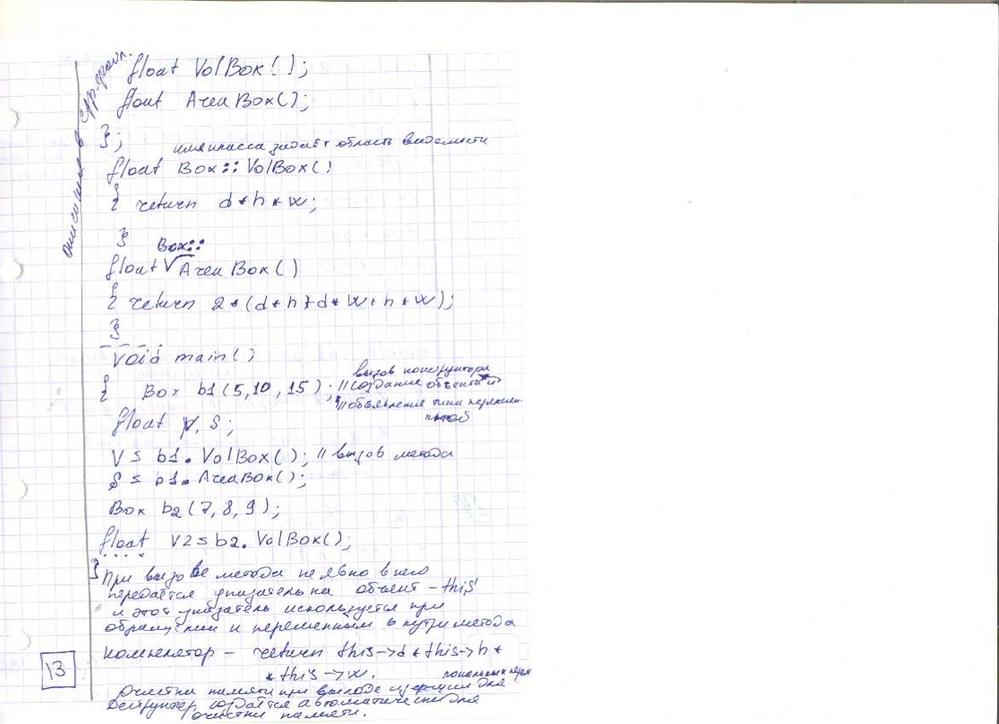 описание в cpp-файл.
float VolBox();
float AreaBox();
};
имя класса задаёт область видимости
float Box::VolBox()
{ return d*h*w;
}
Box::
float √AreaBox()
{ return 2*(d*h+d*w+h*w);
}
void main()
{ Box b1(5,10,15); // создание объекта и
вызов конструктора
// объявления типа перемен-
ной
float V, S;
V = b1.VolBox(); // вызов метода
S = b1.AreaBox();
Box b2(7,8,9);
float V2 = b2.VolBox();
....
}
При вызове метода неявно в него
передаётся указатель на объект – this
и этот указатель используется при
обращении к переменным внутри метода
компилятор – return this->d * this->h *
* this->w.
очистки памяти при выходе из
Деструктор создаётся автоматически для
очистки памяти.
13